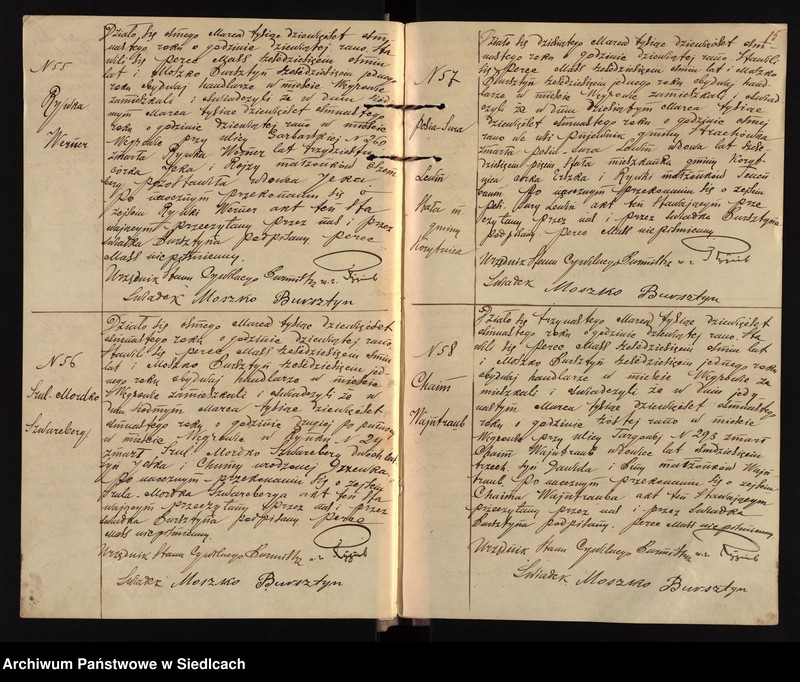 N 55
Rywka
Werner
Działo się ósmego Marca tysiąc dziewięćset osm
nastego roku o godzinie dziewiątej rano. Sta
wili się Perec Mass sześćdziesięciu ośmiu
lat i Moszko Bursztyn sześćdziesięciu jednego
roku obydwaj handlarze w mieście Węgrowie
zamieszkali i świadczyli że w dniu siód
mym Marca tysiąc dziewięćset osmnastego
roku o godzinie dziewiątej rano w mieście
Węgrowie przy ulicy Garbarskiej N 260
zmarła Rywka Werner lat trzydzieści
córka Icka i Rejzy małżonków
pozostawiła wdowca
Po naocznym przekonaniu się o
zejściu Rywki Werner akt ten sta
wającym przeczytany przez nas i przez
świadka Bursztyna podpisany Perec
Mass niepiśmienny.
Urzędnik Stanu Cywilnego Burmistrz
Świadek Moszko Bursztyn
N 56
Szul-Mordko
Szwarcberg
Działo się ósmego Marca tysiąc dziewięćset
osmnastego roku o godzinie dziewiątej rano.
Stawili się Perec Mass sześćdziesięciu ośmiu
lat i Moszko Bursztyn sześćdziesięciu jed
nego roku obydwaj handlarze w mieście
Węgrowie zamieszkali i świadczyli że w
dniu siódmym Marca tysiąc dziewięćset
osmnastego roku o godzinie drugiej po południu
w mieście Węgrowie w Rynku N 24
zmarł Szul Mordko Szwarcberg dwóch lat
syn Jcka i Chumy urodzonej
Po naocznym przekonaniu się o zejściu
Szula-Mordka Szwarcberga akt ten sta
wającym przeczytany przez nas i przez
świadka Bursztyna podpisany Perec
Mass niepiśmienny.
Urzędnik Stanu Cywilnego Burmistrz
Świadek Moszko Bursztyn
15
N 57
Pesia-Sura
Lewin
stała m.
gminy
Korytnica
Działo się dziesiątego Marca tysiąc dziewięćset osm
nastego roku o godzinie dziewiątej rano. Stawili
się Perec Mass sześćdziesięciu ośmiu lat i Moszko
Bursztyn sześćdziesięciu jednego roku obydwaj hand
larze w mieście Węgrowie zamieszkali i świad
czyli że w dniu dziesiątym Marca tysiąc
dziewięćset osmnastego roku o godzinie ósmej
rano we wsi gminy Strachówka
zmarła Pesia-Sura Lewin wdowa lat sześć
dziesięciu pięciu stała mieszkanka gminy Koryt
nica córka Erszka i Rywki małżonków
Po naocznym przekonaniu się o zejściu
Pesi-Sury Lewin akt ten stawającym prze
czytany przez nas i przez świadka Bursztyna
podpisany Perec Mass niepiśmienny
Urzędnik Stanu Cywilnego Burmistrz
Świadek
Moszko Bursztyn
N 58
Chaim
Wajntraub
Działo się trzynastego Marca tysiąc dziewięćset
osmnastego roku o godzinie dziewiątej rano. Sta
wili się Perec Mass sześćdziesięciu ośmiu lat
i Moszko Bursztyn sześćdziesięciu jednego roku
obydwaj handlarze w mieście Węgrowie za
mieszkali i świadczyli że w dniu jede
nastym Marca tysiąc dziewięćset osmnastego
roku o godzinie szóstej rano w mieście
Węgrowie przy ulicy Targowej N 293 zmarł
Chaim Wajntraub wdowiec lat siedmdziesięciu
trzech syn Dawida i małżonków Wajn
traub. Po naocznym przekonaniu się o zejściu
Chaima Wajntrauba akt ten stawającym
przeczytany przez nas i przez świadka
Bursztyna podpisany. Perec Mass niepiśmienny
Urzędnik Stanu Cywilnego Burmistrz
Świadek Moszko Bursztyn
Archiwum Państwowe w Siedlcach